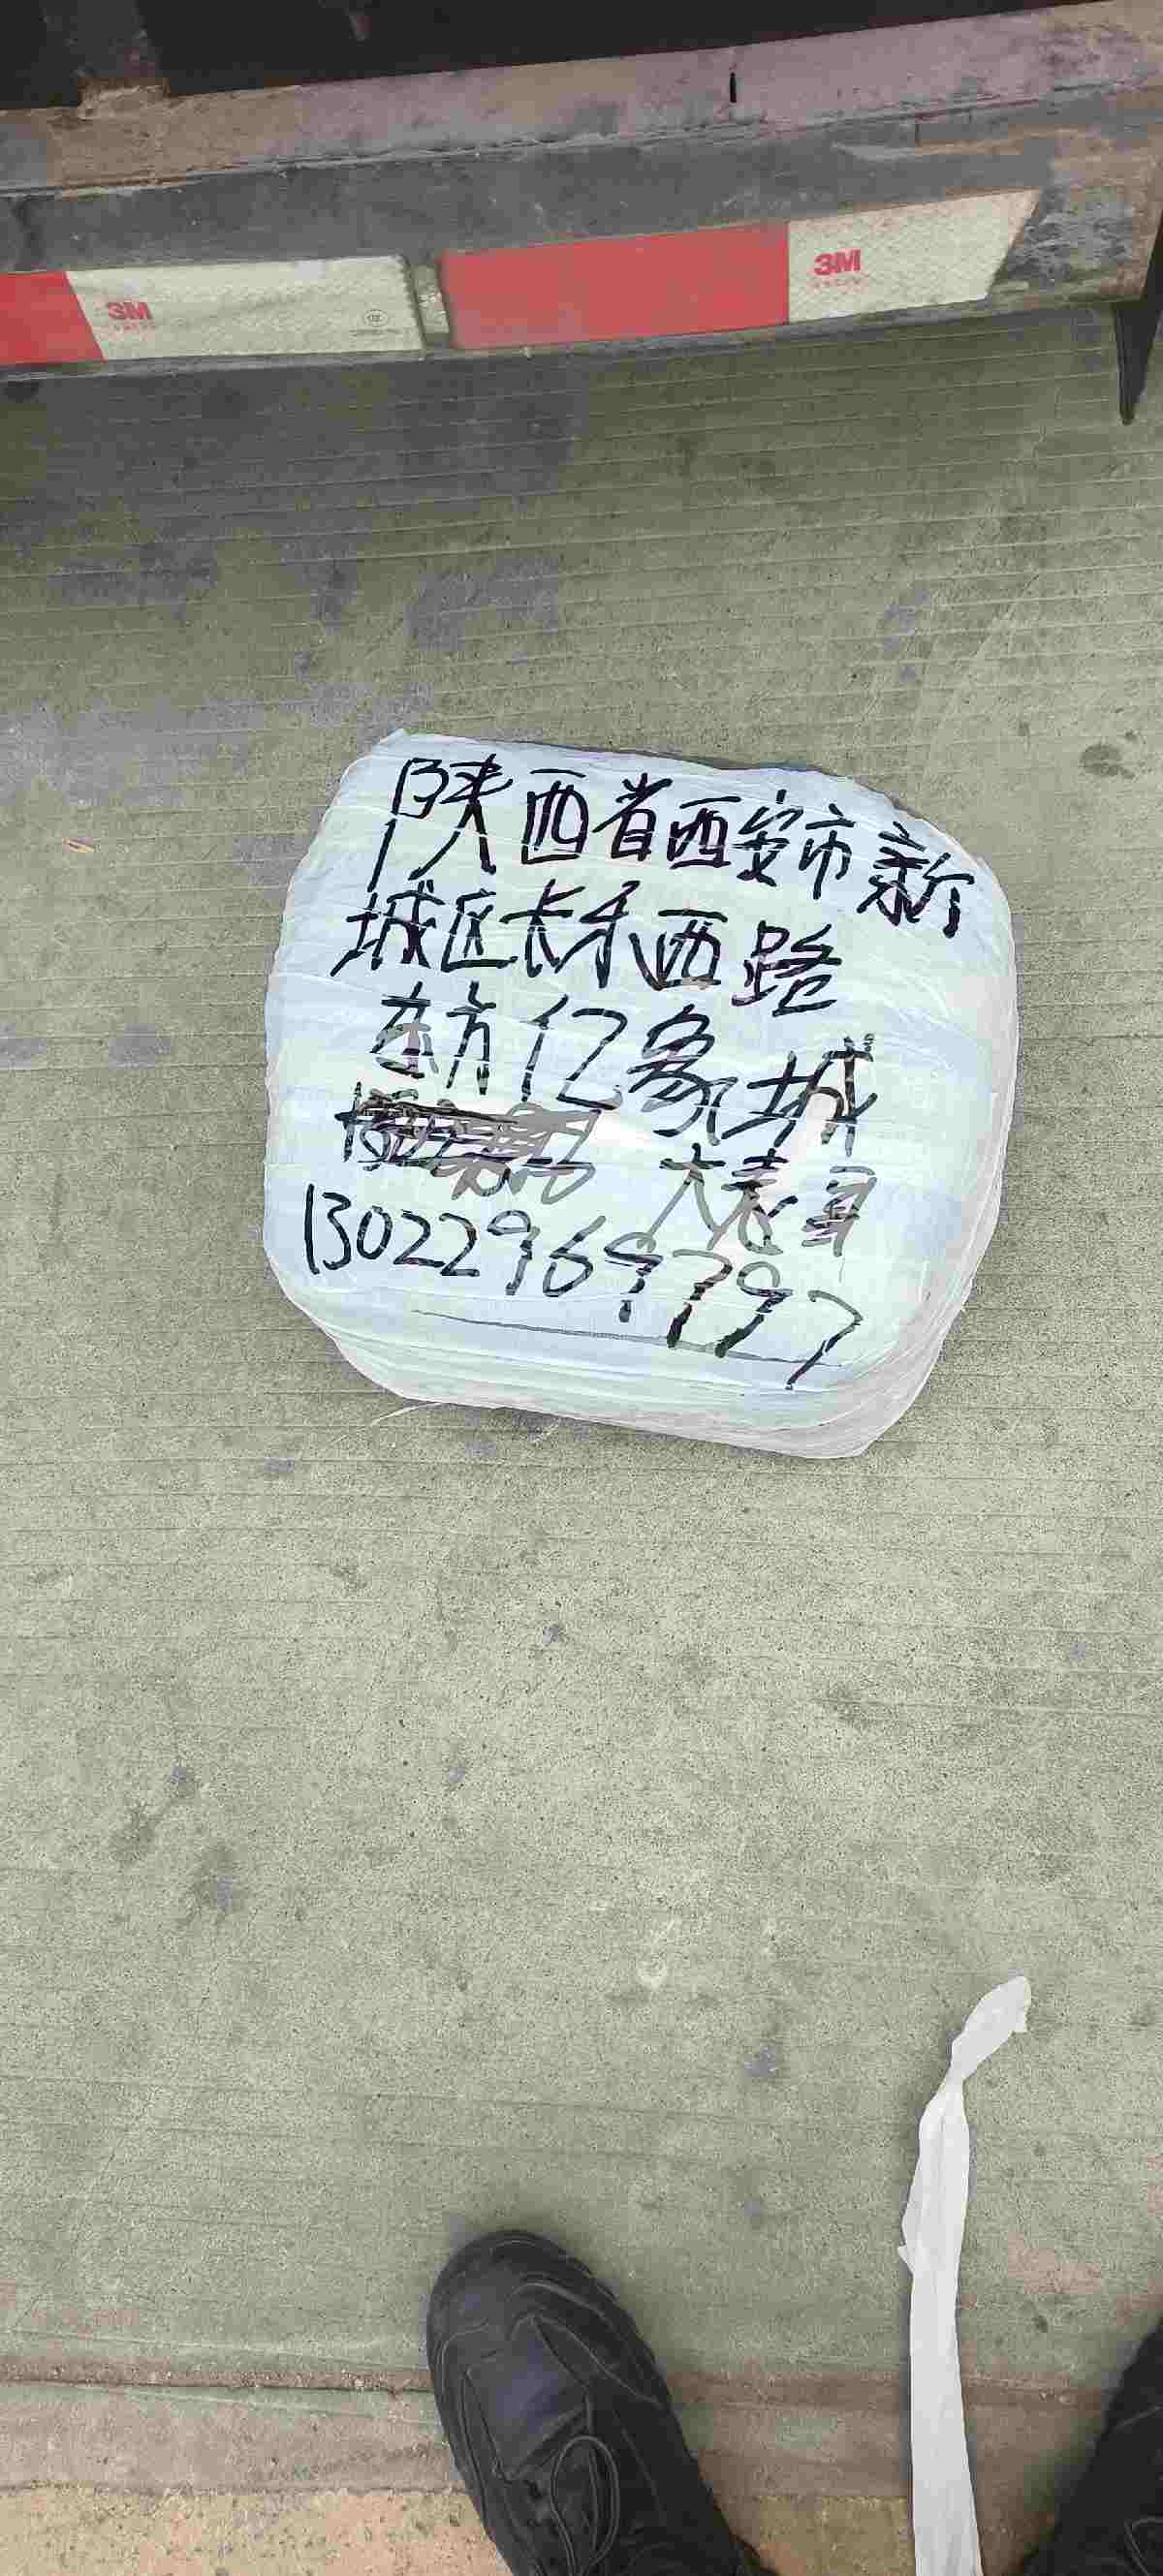 3M
3M
陕西省西安市新
城区长乐西路
东方亿象城
大表哥
13022969797